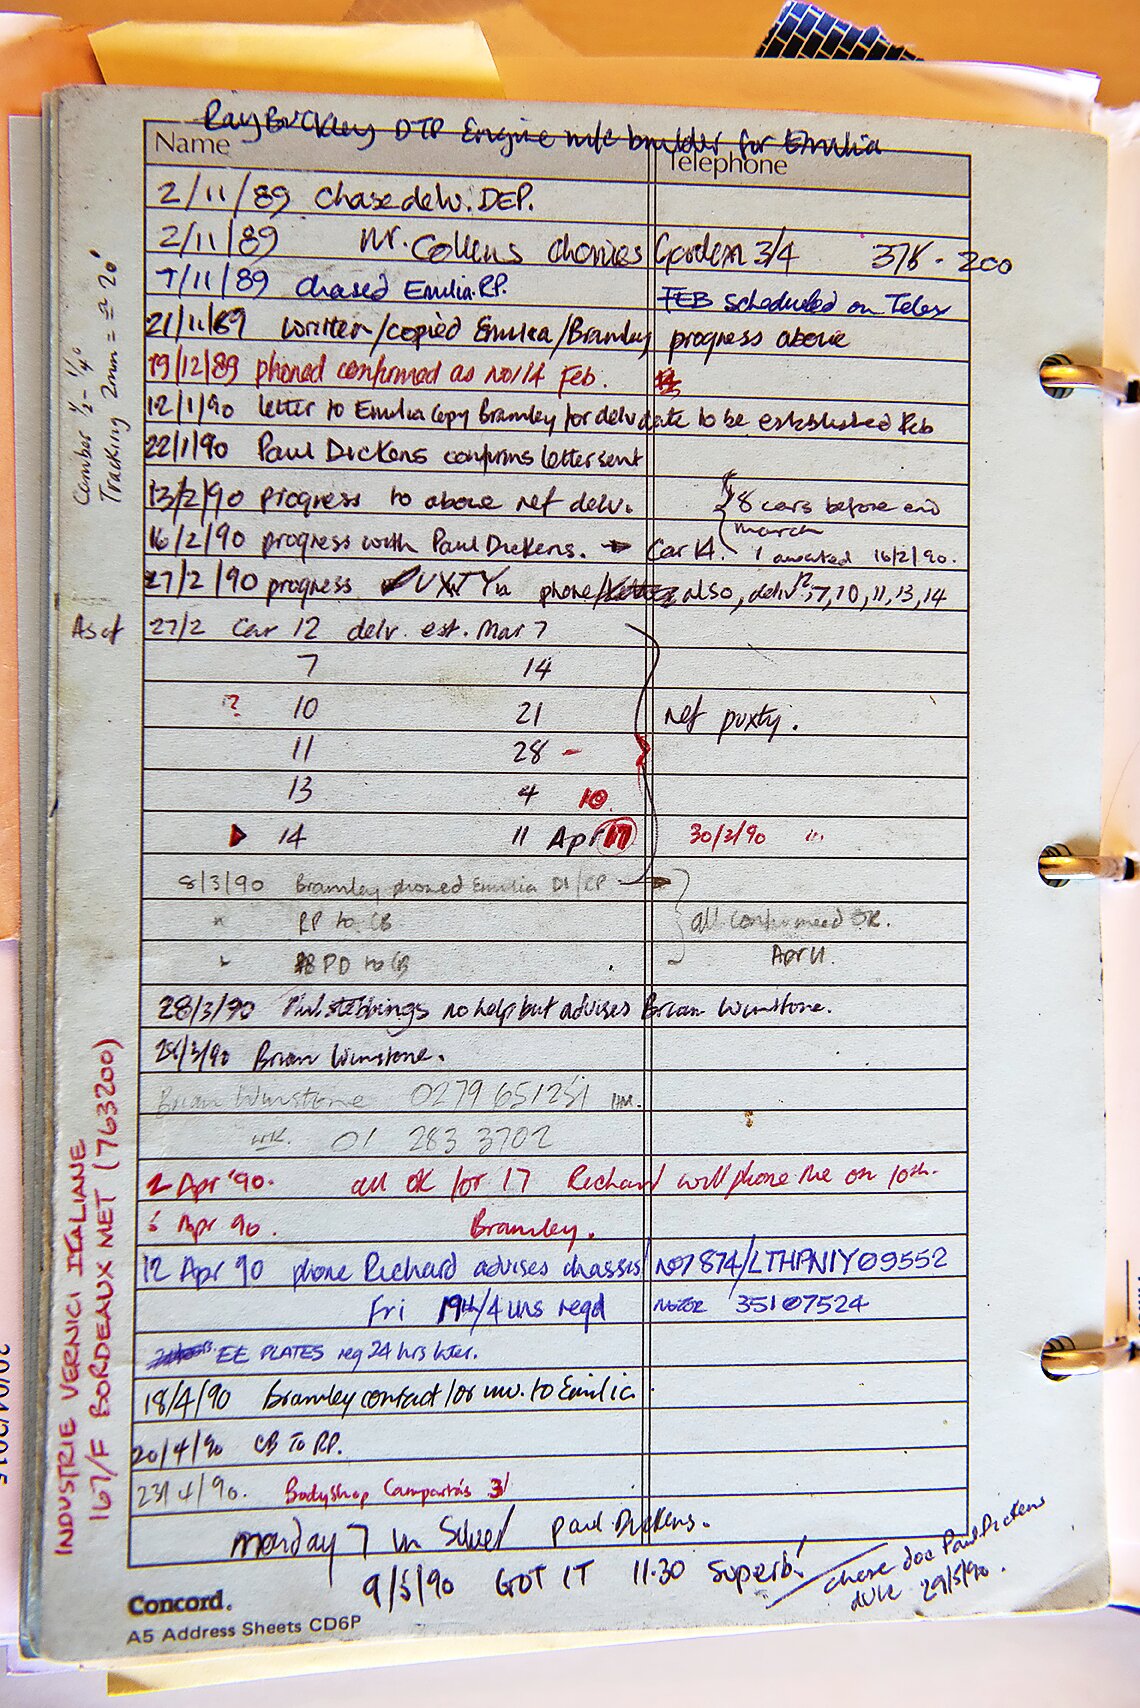 Ray Buckley DTP Engine m/c builder for Emilia
Name Telephone
2/11/89 Chase delv. DEP.
2/11/89 Mr. Collens Garden 3/4 - 200
7/11/89 chased Emilia RP. FEB scheduled on Telex
21/11/89 written/copied Emilia/Bramley progress above
19/12/89 phoned confirmed as no/14 Feb.
12/1/90 letter to Emilia copy Bramley for delv date to be established Feb
22/1/90 Paul Dickens confirms letter sent
13/2/90 progress to above ref delv. 8 cars before end
march
16/2/90 progress with Paul Dickens. → Car 14. 1 awaited 16/2/90.
27/2/90 progress phone/ also, delv 12, 7, 10, 11, 13, 14
As of 27/2 Car 12 delv. est. Mar 7
7 14
? 10 21 ref puxty.
11 28 -
13 4 10
14 11 Apr 17 30/3/90 "
8/3/90 Bramley phoned Emilia DI/RP
" RP to CB all confirmed OK.
" PD to CB April.
28/3/90 Phil Stebbings no help but advises Brian Winstone.
28/3/90 Brian Winstone.
Brian Winstone 0279 651251 HM.
WK. 01 283 3702
2 Apr '90. all OK for 17 Richard will phone me on 10th.
5 Apr 90. Bramley.
12 Apr 90 phone Richard advises chassis no 7874/LTHPNIY09552
Fri 19th/4 ins reqd motor 35107524
EE PLATES reg 24 hrs later.
18/4/90 Bramley contact for inv. to Emilia
20/4/90 CB TO RP.
23/4/90. Bodyshop 3/
Monday 7 in Silver Paul Dickens.
9/5/90 GOT IT 11.30 Superb!
chase doc Paul Dickens
DVLC 29/5/90.
Concord.
A5 Address Sheets CD6P
Camber 1/2 - 1/4°
Tracking 2mm = 20'
INDUSTRIE VERNICI ITALIANE
167/F BORDEAUX MET (763200)